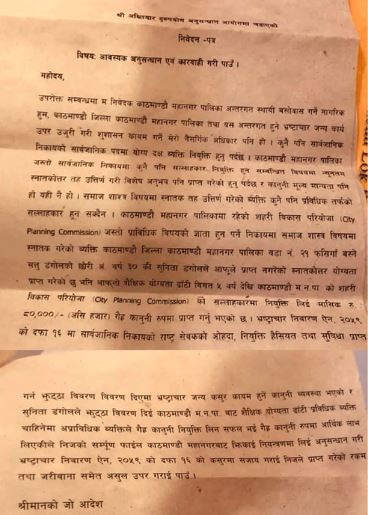 श्री अख्तियार दुरुपयोग अनुसन्धान आयोगमा चढाएको
निवेदन -पत्र
विषयः आवश्यक अनुसन्धान एवं कारवाही गरी पाउँ ।
महोदय,
उपरोक्त सम्बन्धमा म निवेदक काठमाण्डौ महानगर पालिका अन्तरगत स्थायी बसोवास गर्ने नागरिक
हुम, काठमाण्डौ जिल्ला काठमाण्डौ महानगर पालिका तथा यस अन्तरगत हुने भ्रष्टाचार जन्य कार्य
उपर उजुरी गरी शुशासन कायम गर्ने मेरो नैसर्गिक अधिकार पनि हो । कुनै पनि सार्वजनिक
निकायको सार्वजानिक पदमा योग्य दक्ष व्यक्ति नियुक्ति हुनु पर्दछ । काठमाण्डौ महानगर पालिका
जस्तो सार्वजनिक निकायमा कुनै पनि सल्लाहकार नियुक्ति हुन सम्बन्धित विषयमा न्यूनतम
स्नातकोत्तर तह उत्तिर्ण गरी विशेष अनुभव पनि प्राप्त गरेको हुनु पर्दछ र कानुनी मुल्य मान्यता पनि
हो यही नै हो । समाज शास्त्र विषयमा स्नातक तह उत्तिर्ण गरेको व्यक्ति कुनै पनि प्राविधिक तर्फको
सल्लाहकार हुन सक्दैन । काठमाण्डौ महानगर पालिकामा रहेको शहरी विकास परियोजा (City
Planning Commission) जस्तो प्राविधिक विषयको ज्ञाता हुन पर्ने निकायमा समाज शास्त्र विषयमा
स्नातक गरेको व्यक्ति काठमाण्डौ जिल्ला काठमाण्डौ महानगर पालिका वडा नं. २१ फरिगाउँ बस्ने
सन्तु डंगोलको छोरी अं. वर्ष ३० की सुनिता डंगोलले आफूले प्राप्त नगरेको स्नातकोत्तर योग्यता
प्राप्त गरेको छु भनि आफ्नो शैक्षिक योग्यता ढाँटी विगत ५ वर्ष देखि काठमाण्डौ म.न.पा. को शहरी
विकास परियोजा (City Planning Commission) को सल्लाहकारमा नियुक्ति लिई मासिक रु :
८०,०००/- (असि हजार) गैह्र कानुनी रुपमा प्राप्त गर्नु भएको छ । भ्रष्टाचार निबारण ऐन, २०५९
को दफा १६ मा सार्वजानिक निकायको राष्ट्र सेवकको ओहदा, नियुक्ति हैसियत तथा सुविधा प्राप्त
गर्न भुठ्ठा विवरण विवरण दिएमा भ्रष्टाचार जन्य कसुर कायम हुने कानुनी ब्यवस्था भएको र
सुनिता डंगोलले भुठ्ठा विवरण दिई काठमाण्डौ म.न.पा. बाट शैक्षिक योग्यता ढाँटी प्राविधिक ब्यक्ति
चाहिनेमा अप्राविधिक ब्यक्तिले गैह्र कानुनी नियुक्ति लिन सफल भई गैह्र कानुनी रुपमा आर्थिक लाभ
लिएकीले निजको सर्म्पूण फाईल काठमाण्डौ महानगरबाट भिकाई नियन्त्रणमा लिई अनुसन्धान गरी
भ्रष्टाचार निवारण ऐन, २०५९ को दफा १६ को कसुरमा सजाय गराई निजले प्राप्त गरेको रकम
तथा जरीवाना समेत असुल उपर गराई पाउँ ।
श्रीमानको जो आदेश